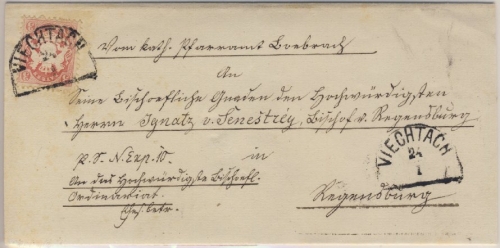 VIECHTACH
24
Vom kath. Pfarramt Boebrach
An
Seine Bischoefliche Gnaden den Hochwürdigsten
Herrn Ignatz v. Senestréy, Bischof v. Regensburg
VIECHTACH
24
1
p. S. N. Exp. 10.
in
An das Hochwürdigste Bischoefl.
Ordinariat.
Regensburg